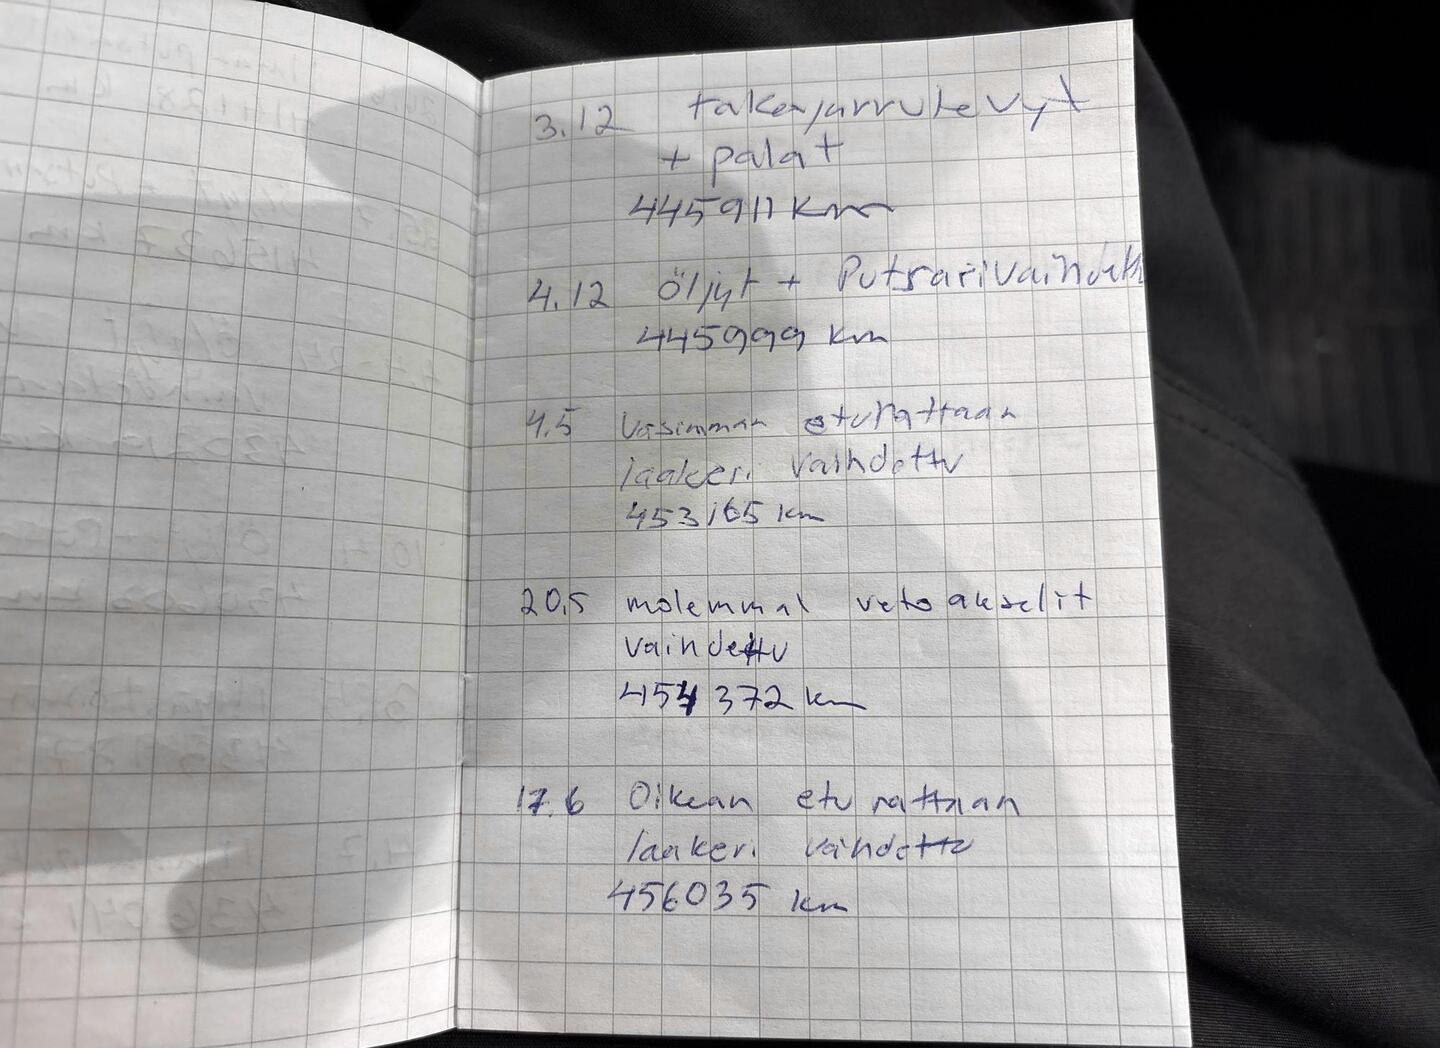 3.12 takajarrulevyt
+ palat
445911 km
4.12 öljyt + Putsarivaihdettu
445999 km
4.5 Vasimman eturattaan
laakeri vaihdettu
453165 km
20.5 molemmat vetoakselit
vaihdettu
454372 km
17.6 Oikean eturattaan
laakeri vaihdettu
456035 km